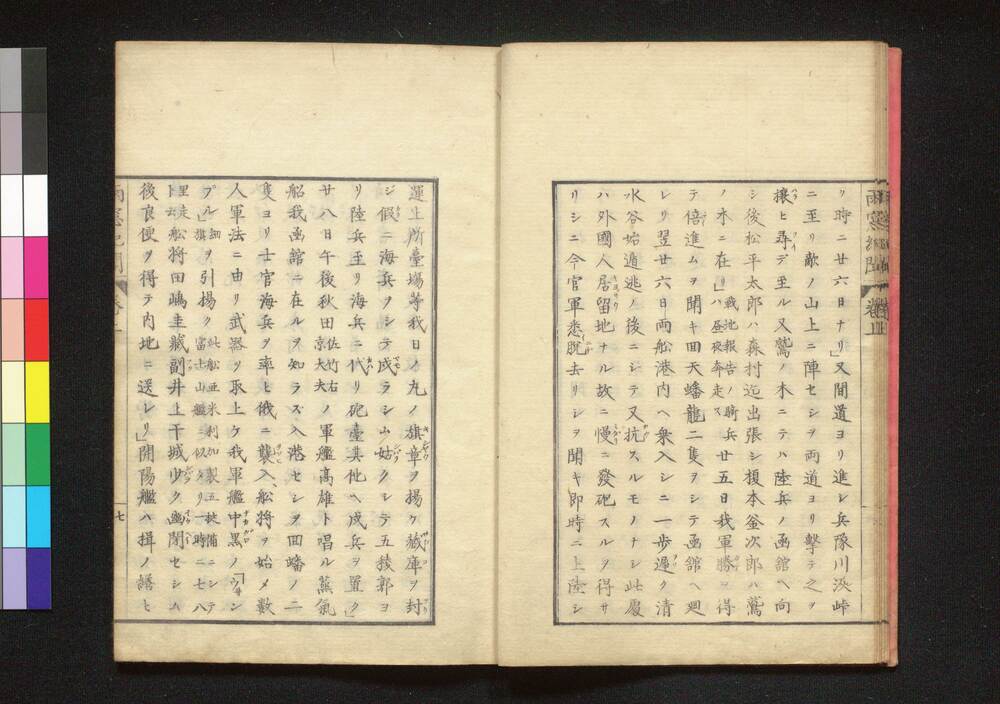 ク時ニ廿六日ナリ」又間道ヨリ進レ兵豫川浹峠
ニ至リ敵ノ山上ニ陣セシヲ両道ヨリ撃テ之ヲ
攘ヒ尋デ至ル又鷲ノ木ニテハ陸兵ノ函舘ヘ向
シ後松平太郎ハ森村迄出張シ榎本釜次郎ハ鷲
ノ木ニ在リ」ハ昼夜奔走ス戦地報告ノ騎兵廿五日我軍勝ヲ得
テ倍進ムヲ聞キ回天蟠龍二隻ヲシテ函舘ヘ廻
レリ翌廿六日両舩港内ヘ乗入シニ一歩遏ク清
水谷始遁逃ノ後ニシテ又抗スルモノナシ此度
ハ外國人居留地ナル故ニ慢ニ發砲スルヲ得サ
リシニ今官軍悉脱去リシヲ聞キ即時ニ上陸シ
運上所臺場等我日ノ丸ノ旗章ヲ揚ケ蔵庫ヲ封
シ假ニ海兵ヲシテ戍ラシム姑クシテ五稜郭ヨ
リ陸兵至リ海兵ニ代リ砲臺其他ヘ戍兵ヲ置ク」
廿八日午後秋田佐竹右京大夫ノ軍艦髙雄ト唱ル蒸氣
船我函舘ニ在ルヲ知ラズ入港セシヲ回蟠ノ二
隻ヨリ士官海兵ヲ率ヒ俄ニ襲入舩将ヲ始メ数
人軍法ニ由リ武器ヲ取上ケ我軍艦中黒ノ「ウヰン
プル」細旗ヲ引揚ク此舩亜米利加製五拔備ニシテ富士山艦ニ似タリ一時ニ七八
里走ト云舩将田嶋圭蔵副井上干城少ク幽閉セシム
後良便ヲ得テ内地ニ送レリ」開陽艦ハ揖ノ譜ヒ
七